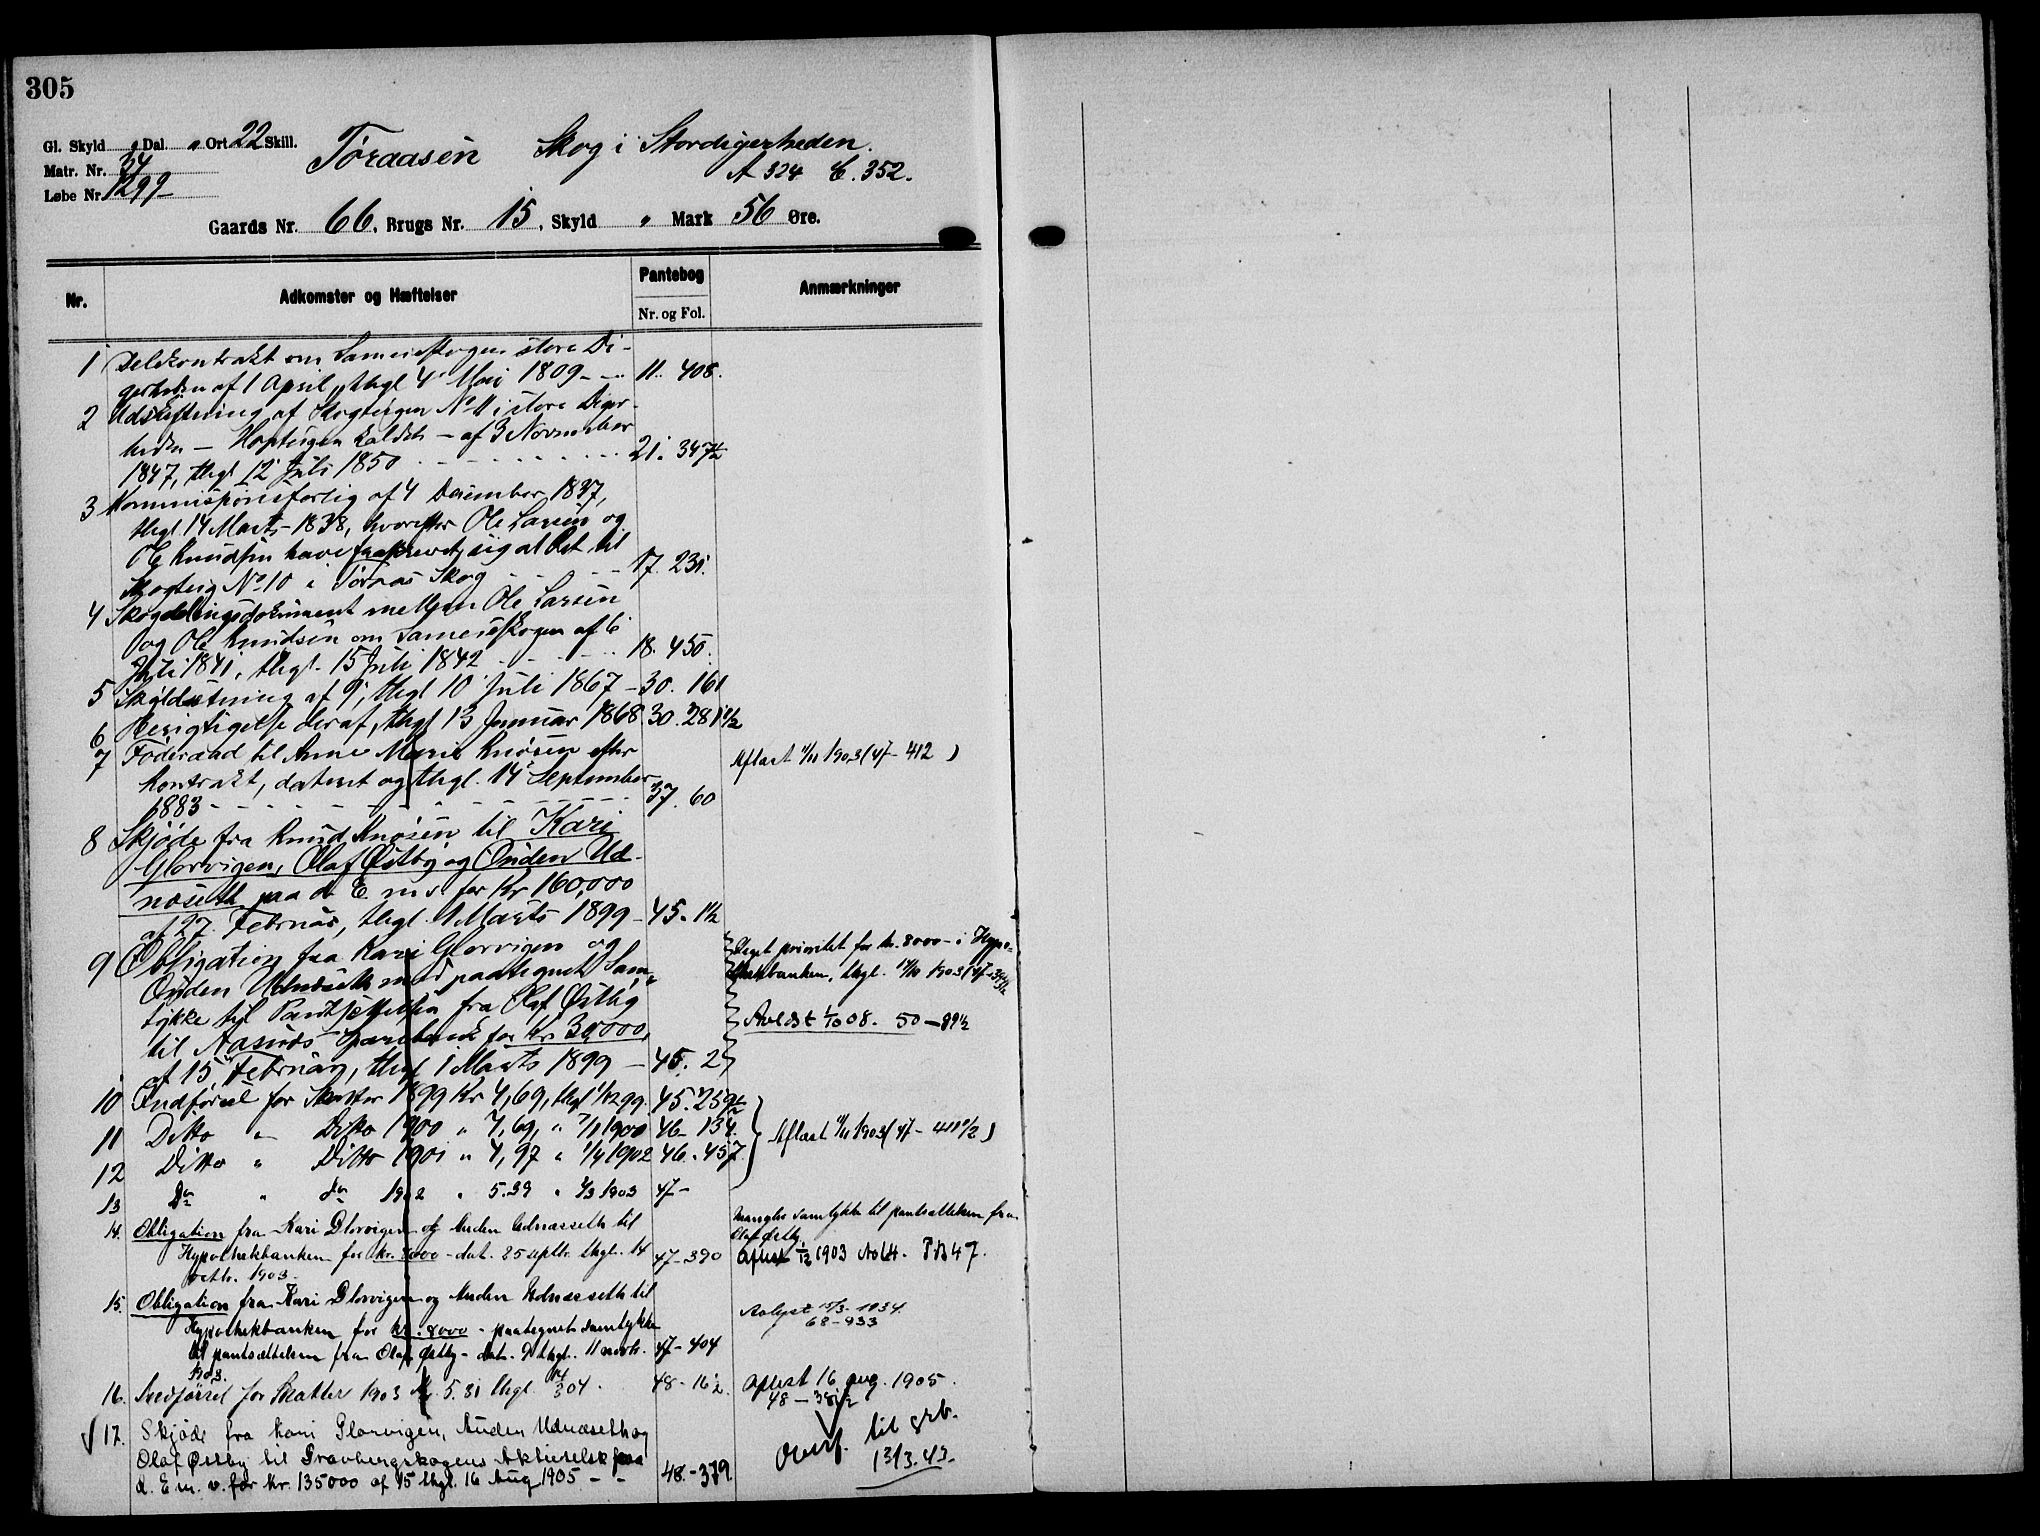 305
Gl. Skyld " Dal. " Ort 22 Skill.
Matr. Nr. 34
Løbe Nr. 1299
Toraasen Skog i Stordigerheden.
A 324 C. 352.
Gaards Nr. 66, Brugs Nr. 15, Skyld " Mark 56 Øre.
Nr. Adkomster og Hæftelser Pantebog Anmærkninger
Nr. og Fol.
1 Delekontrakt om Sameieskogen store Di-
gerheden af 1 April, thgl 4 Mai 1809 - - 11. 408.
2 Udskiftning af Skogteigen No 11 i store Diger-
heden - Hopteigen kaldet - af 3 November
1847, thgl 12 Juli 1850 21. 347½
3 Kommissionsforlig af 4 December 1837,
thgl 14 Marts 1838, hvorefter Ole Larsen og
Ole Knudsen have fraskrevet sig al Ret til
Skogteig No 10 i Toraas Skog 17. 231.
4 Skogdelingsdokument mellem Ole Larsen
og Ole Knudsen om Sameieskogen af 6
Juli 1841, thgl. 15 Juli 1842 18. 450.
5 Skyldsetning af 9, thgl 10 Juli 1867 - 30. 161
6 Berigtigelse deraf, thgl 13 Januar 1868 30. 281½
7 Føderaad til Anne Marie Knosen efter
Kontrakt, dateret og thgl. 14 September
1883 - - - 37. 60
Aflæst 11/11 1903 (47 - 412)
8 Skjøde fra Knud Knosen til Kari
Glorvigen, Olaf Østby og Onden Ud-
næseth paa d. E. m. v. for Kr 160,000
af 27. Februar, thgl. 1 Marts 1899 - 45. 1½
9 Obligation fra Kari Glorvigen og
Onden Udnæseth med paategnet Sam-
tykke til Pantsettelsen fra Olaf Østby
til Aasnes Sparebank for Kr. 30,000,
af 15 Februar, thgl 1 Marts 1899 - 45. 2
Veget prioritet for kr. 8000 - i Hypo-
thekbanken, thgl. 14/10 1903 (47-
Avlæst 1/10 08. 50 - 89½
10 Indførsel for Skatter 1899 Kr 4,69, thgl 1/12 99. 45. 259½
11 Ditto " Ditto 1900 " 4,69, " 7/11 1900 46 - 134.
12 Ditto " Ditto 1901 " 4,97 " 1/4 1902 46. 457
Aflæst 11/11 1903 (47 - 411½)
13 Do " do 1902 " 5.39 " 4/3 1903 47 -
14. Obligation fra Kari Glorvigen og Anden Udnæsseth til
Hypothekbanken for kr. 8000 - dat. 25 septbr. thgl. 14
octbr. 1903. 47 - 390
Mangler samtykke til pantsættelsen fra
Olaf Østby.
Aflæst 1/12 1903 No 14. P.B. 47.
15. Obligation fra Kari Glorvigen og Anden Udnæsseth til
Hypothekbanken for kr. 8000 - paategnet samtykke
til pantsættelsen fra Olaf Østby - dat. 9 thgl. 11 novbr. 47 - 404
1903.
Avlyst 15/3. 1934.
68 - 933
16. Indførsel for Skatter 1903 Kr. 5.31 thgl. 304. 48 - 162.
Aflæst 16 aug. 1905.
17. Skjøde fra Kari Glorvigen, Auden Udnæseth og
Olaf Østby til Gravbergskogens Aktieselsk. paa
d. E. m. v. for Kr. 135000 af 15 thgl. 16 Aug 1905 - - 48. - 379.
Overf. til grb.
13/3. 43.